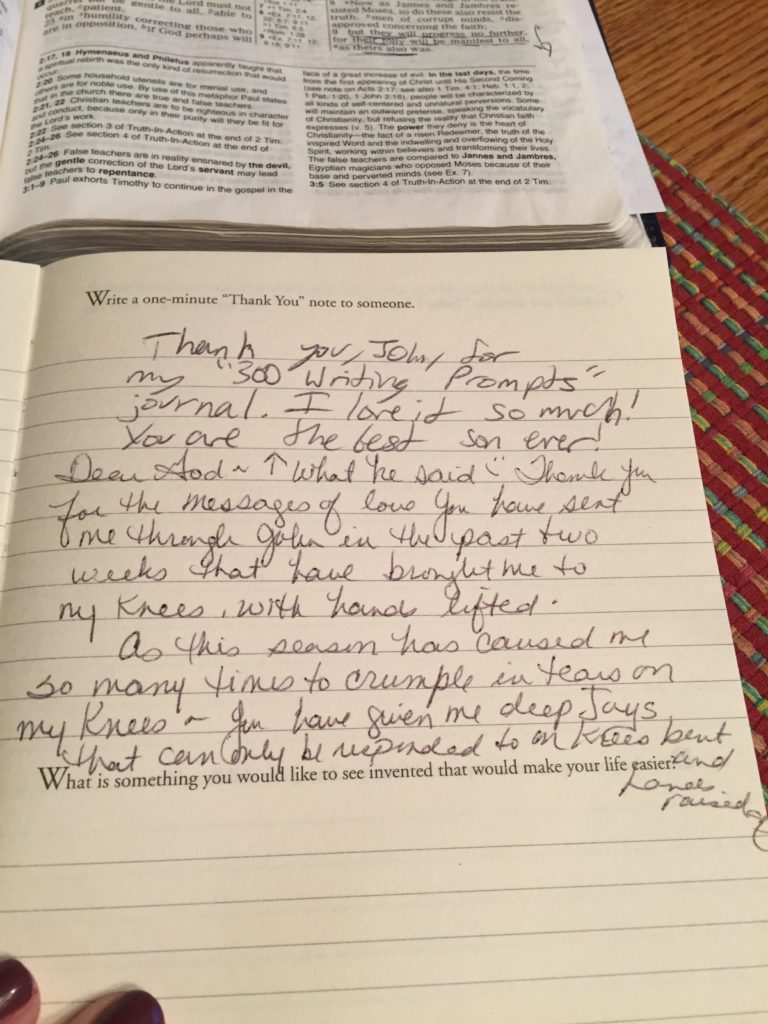 quarrel but be gentle to all, able to
teach, patient,
25 in humility correcting those who
are in opposition, if God perhaps will
8 Now as Jannes and Jambres re-
sisted Moses, so do these also resist the
truth: men of corrupt minds, dis-
approved concerning the faith;
9 but they will progress no further,
for their folly will be manifest to all,
as theirs also was.
2:17, 18 Hymenaeus and Philetus apparently taught that
a spiritual rebirth was the only kind of resurrection that would
occur.
2:20 Some household utensils are for menial use, and
others are for noble use. By use of this metaphor Paul states
that in the church there are true and false teachers.
2:21, 22 Christian teachers are to be righteous in character
and conduct, because only in their purity will they be fit for
the Lord's work.
2:22 See section 3 of Truth-In-Action at the end of 2 Tim.
2:24–26 See section 4 of Truth-In-Action at the end of
2 Tim.
2:24–26 False teachers are in reality ensnared by the devil,
but the gentle correction of the Lord's servant may lead
false teachers to repentance.
3:1–9 Paul exhorts Timothy to continue in the gospel in the
face of a great increase of evil. In the last days, the time
from the first appearing of Christ until His Second Coming
(see note on Acts 2:17; see also 1 Tim. 4:1; Heb. 1:1, 2;
1 Pet. 1:20; 1 John 2:18), people will be characterized by
all kinds of self-centered and unnatural perversions. Some
will maintain an outward pretense, speaking the vocabulary
of Christianity, but refusing the reality that Christian faith
expresses (v. 5). The power they deny is the heart of
Christianity—the fact of a risen Redeemer, the truth of the
inspired Word and the indwelling and overflowing of the Holy
Spirit, working within believers and transforming their lives.
The false teachers are compared to Jannes and Jambres,
Egyptian magicians who opposed Moses because of their
base and perverted minds (see Ex. 7).
3:5 See section 4 of Truth-In-Action at the end of 2 Tim.
Write a one-minute "Thank You" note to someone.
Thank you, John, for
my "300 Writing Prompts"
journal. I love it so much!
You are the best son ever!
Dear God ~ ↑ What he said Thank you
for the messages of love You have sent
me through John in the past two
weeks that have brought me to
my knees, with hands lifted.
As this season has caused me
so many times to crumple in tears on
my knees ~ You have given me deep Joys
that can only be responded to on knees bent
and
hands
raised
What is something you would like to see invented that would make your life easier?